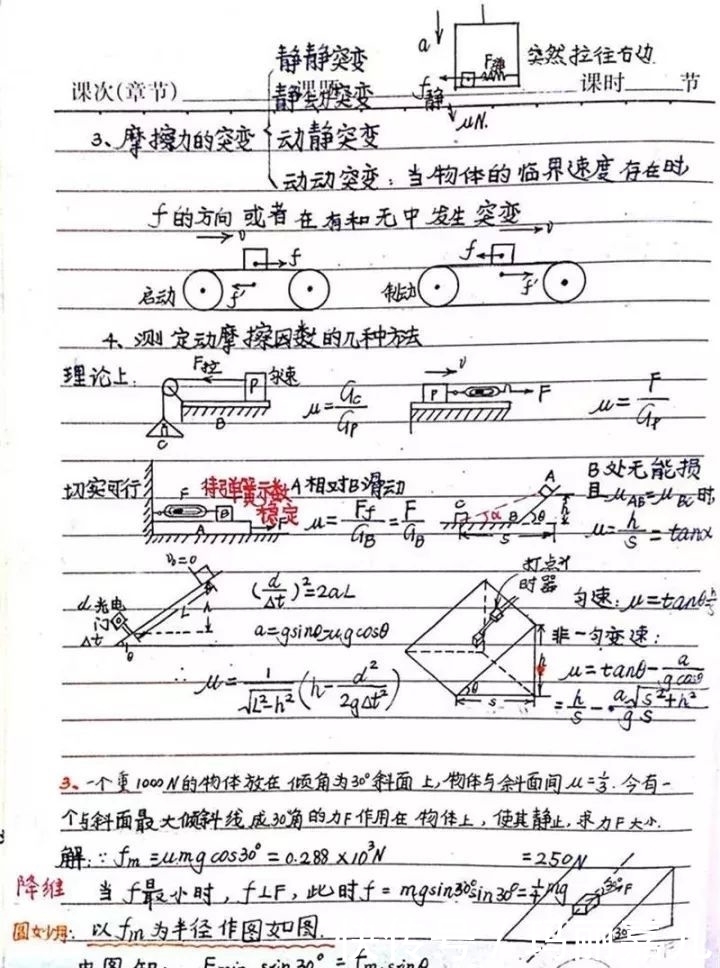 静静突变
a
F弹
突然拉往右边
课次(章节)
静动突变
课题
f静
课时 节
μN.
3、摩擦力的突变
动静突变
动动突变：当物体的临界速度存在时,
f的方向或者在有和无中发生突变
v
v
f
f
启动
f'
制动
f'
4、测定动摩擦因数的几种方法
理论上:
F拉
P
匀速
B
C
μ=Gc/Gp
v
P
F
μ=F/Gp
切实可行
F
B
A
待弹簧示数稳定
F
A相对B滑动
μ=Ff/GB=F/GB
A
C
α
B
θ
h
s
B处无能损
且μAB=μBC时,
μ=h/s=tanα
v₀=0
d光电门
Δt
L
h
θ
(d/Δt)²=2aL
a=gsinθ-μgcosθ
∴ μ=1/√(L²-h²)(h-d²/2gΔt²)
打点计时器
θ
s
h
匀速：μ=tanθ=h/s
非匀变速：
μ=tanθ-a/gcosθ
=h/s-a/g·√(s²+h²)/s
3、一个重1000N的物体放在倾角为30°斜面上,物体与斜面间μ=1/3.今有一
个与斜面最大倾斜线成30°角的力F作用在物体上,使其静止,求力F大小.
解：∵fm=μmgcos30°=0.288×10³N
=250N
降维
当f最小时,f⊥F,此时f=mgsin30°sin30°=1/4mg
30°
F
30°
圆妙用:
以fm为半径作图如图.